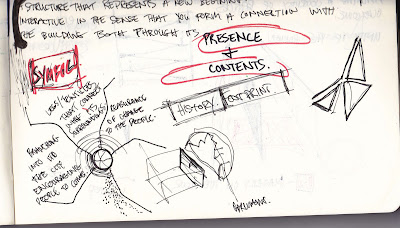 STRUCTURE THAT REPRESENTS A NEW BEGINNING
INTERACTIVE: IN THE SENSE THAT YOU FORM A CONNECTION WITH
THE BUILDING BOTH THROUGH ITS PRESENCE
+
CONTENTS.
SYMBOL
THAT CONNECTS
WITH ITS
SURROUNDINGS
REASSURANCE
OF CHANGE
TO THE PEOPLE.
HISTORY. FOOTPRINT
INTO
THE CITY
ENCOURAGING
PEOPLE TO COME.